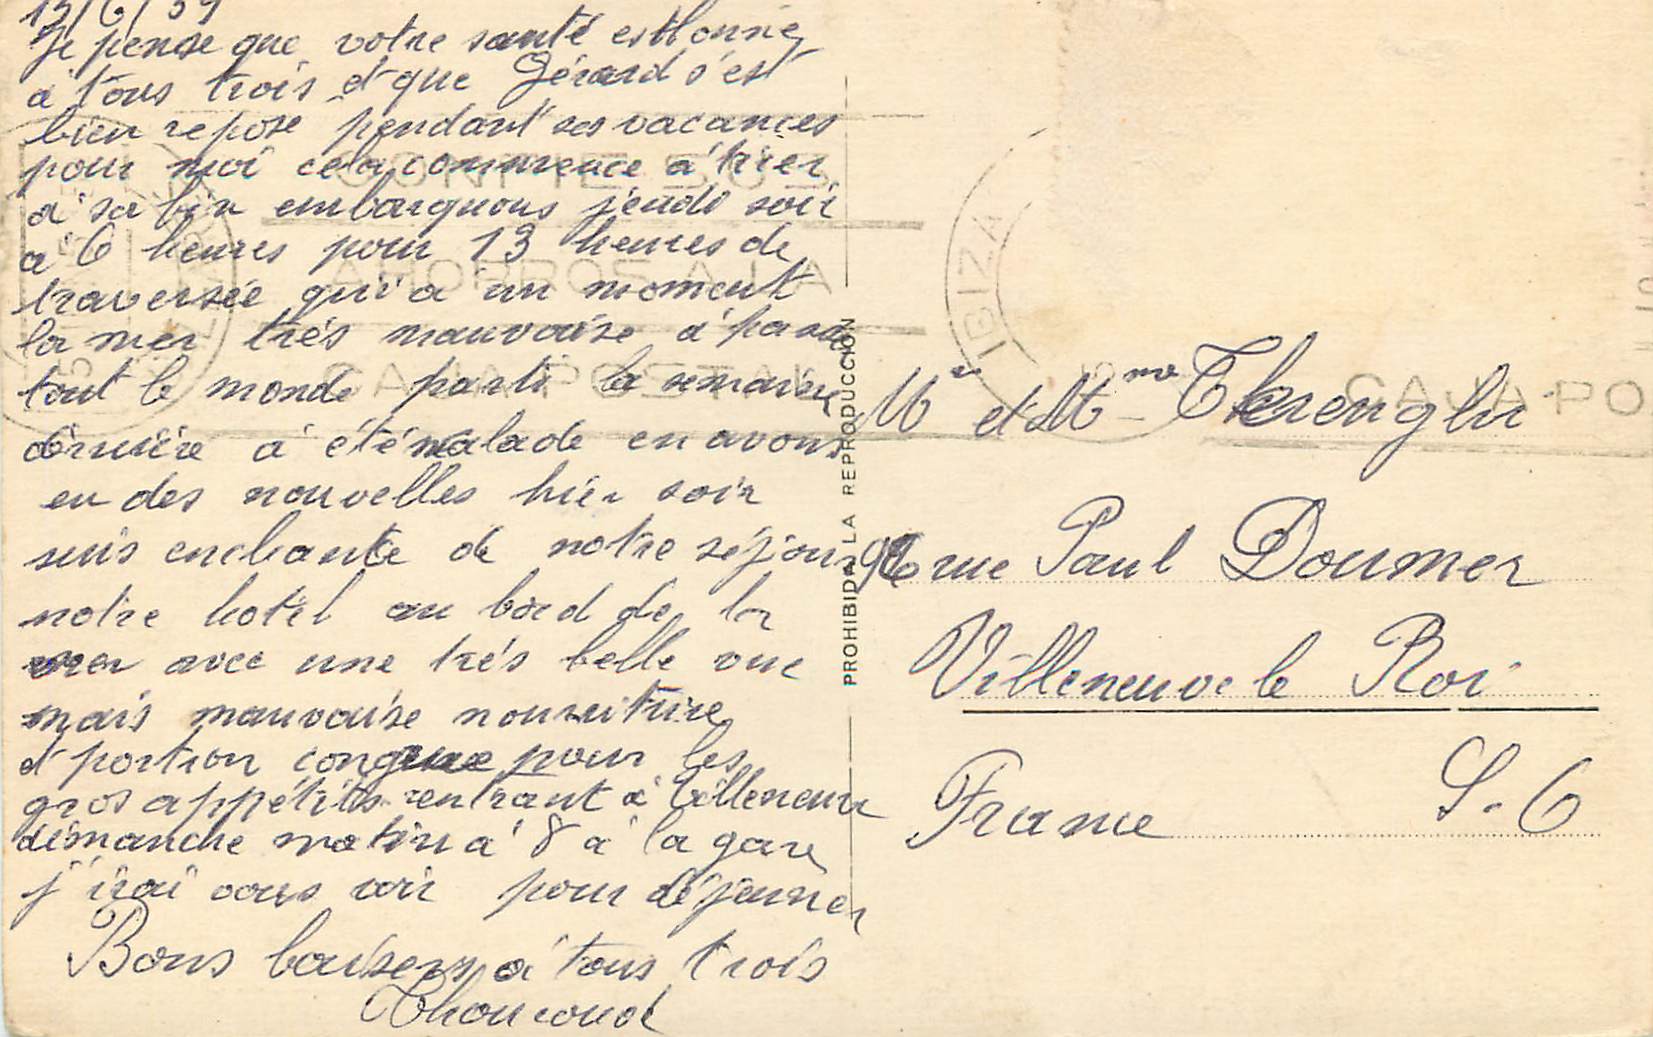 Je pense que votre santé est bonne
à tous trois et que Gérard s'est
bien repose pendant ses vacances
pour moi cela commence à tirer
à sa fin embarquons jeudi soir
a 6 heures pour 13 heures de
traversée qu'i a un moment
la mer très mauvaise à
tout le monde parti la semaine
dernière à été malade en avons
eu des nouvelles hier soir
suis enchante de notre séjour
notre hotel au bord de la
mer avec une très belle vue
mais mauvaise nourriture
et portion congrue pour les
gros appétits rentrant à Villeneuve
dimanche matin à 8 à la gare
j'irai vous voir pour déjeuner
Bons baisers à tous trois
PROHIBIDA LA REPRODUCCIÓN
Mr et Mme
rue Paul Doumer
Villeneuve le Roi
France S.O
CONTIE SUS
AHORROS A LA
CAJA POSTAL
IBIZA
CAJA PO